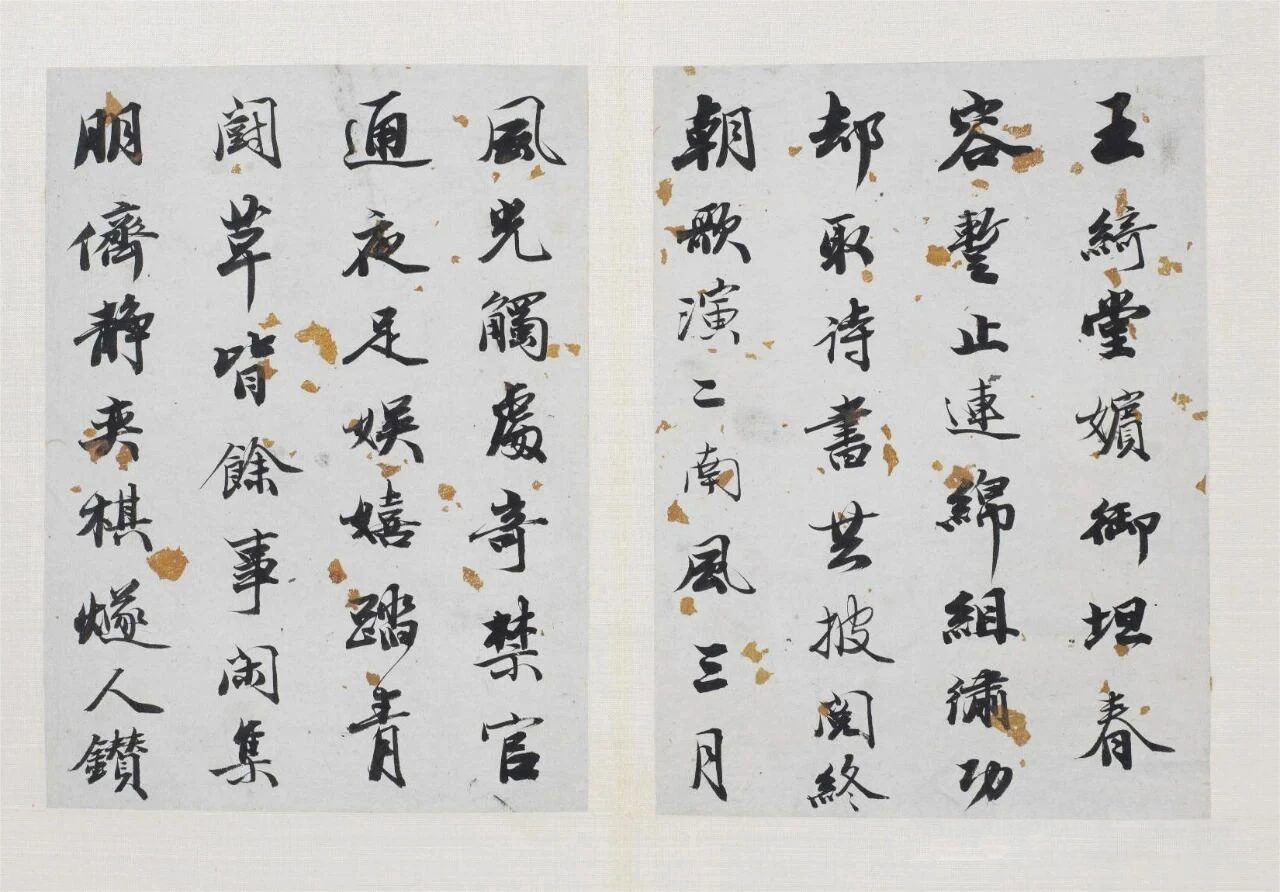 王綺堂嬪御坦春
容蹔止連綿組繡功
却取詩書共披閱終
朝歌演二南風三月
風光觸處奇禁官
通夜足娱嬉踏青
鬪草皆餘事閑集
朋儕静奕棋燧人鑚